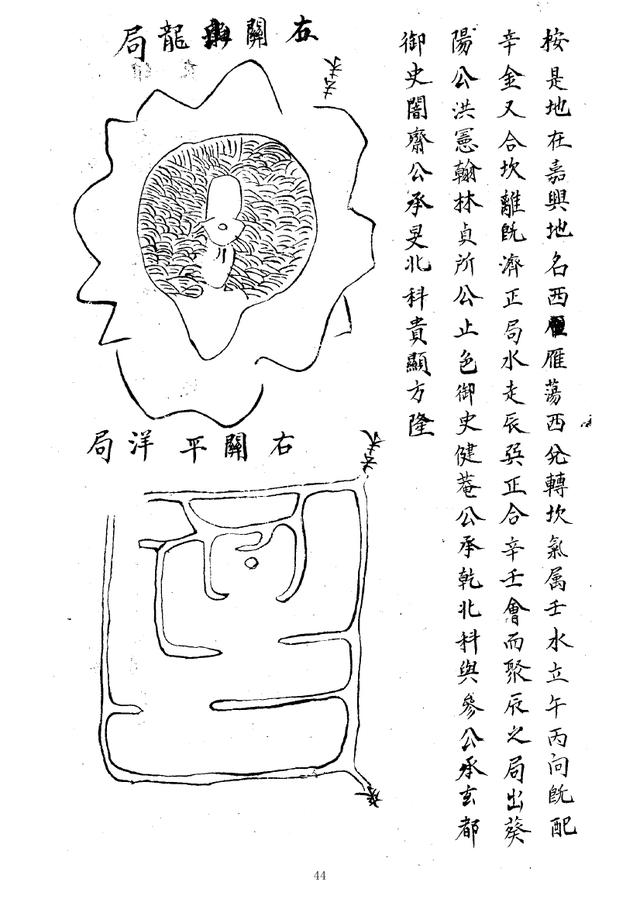 按是地在嘉興地名西雁蕩西兌轉坎氣属壬水立午丙向既配
辛金又合坎離既濟正局水走辰巽正合辛壬會而聚辰之局出葵
陽公洪憲翰林貞所公止色御史健菴公承乾北科與參公承玄都
御史闇齋公承旻北科貴顯方隆
右關龍局
去水
右關平洋局
去水
44